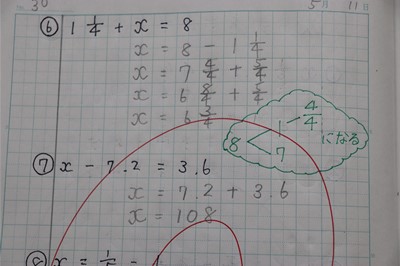 30 5 11
⑥ 1 1/4 + x = 8
x = 8 - 1 1/4
x = 7 4/4 + 5/4
x = 6 8/4 + 5/4
x = 6 3/4
8 < 1 - 4/4
7
になる
⑦ x - 7.2 = 3.6
x = 7.2 + 3.6
x = 108